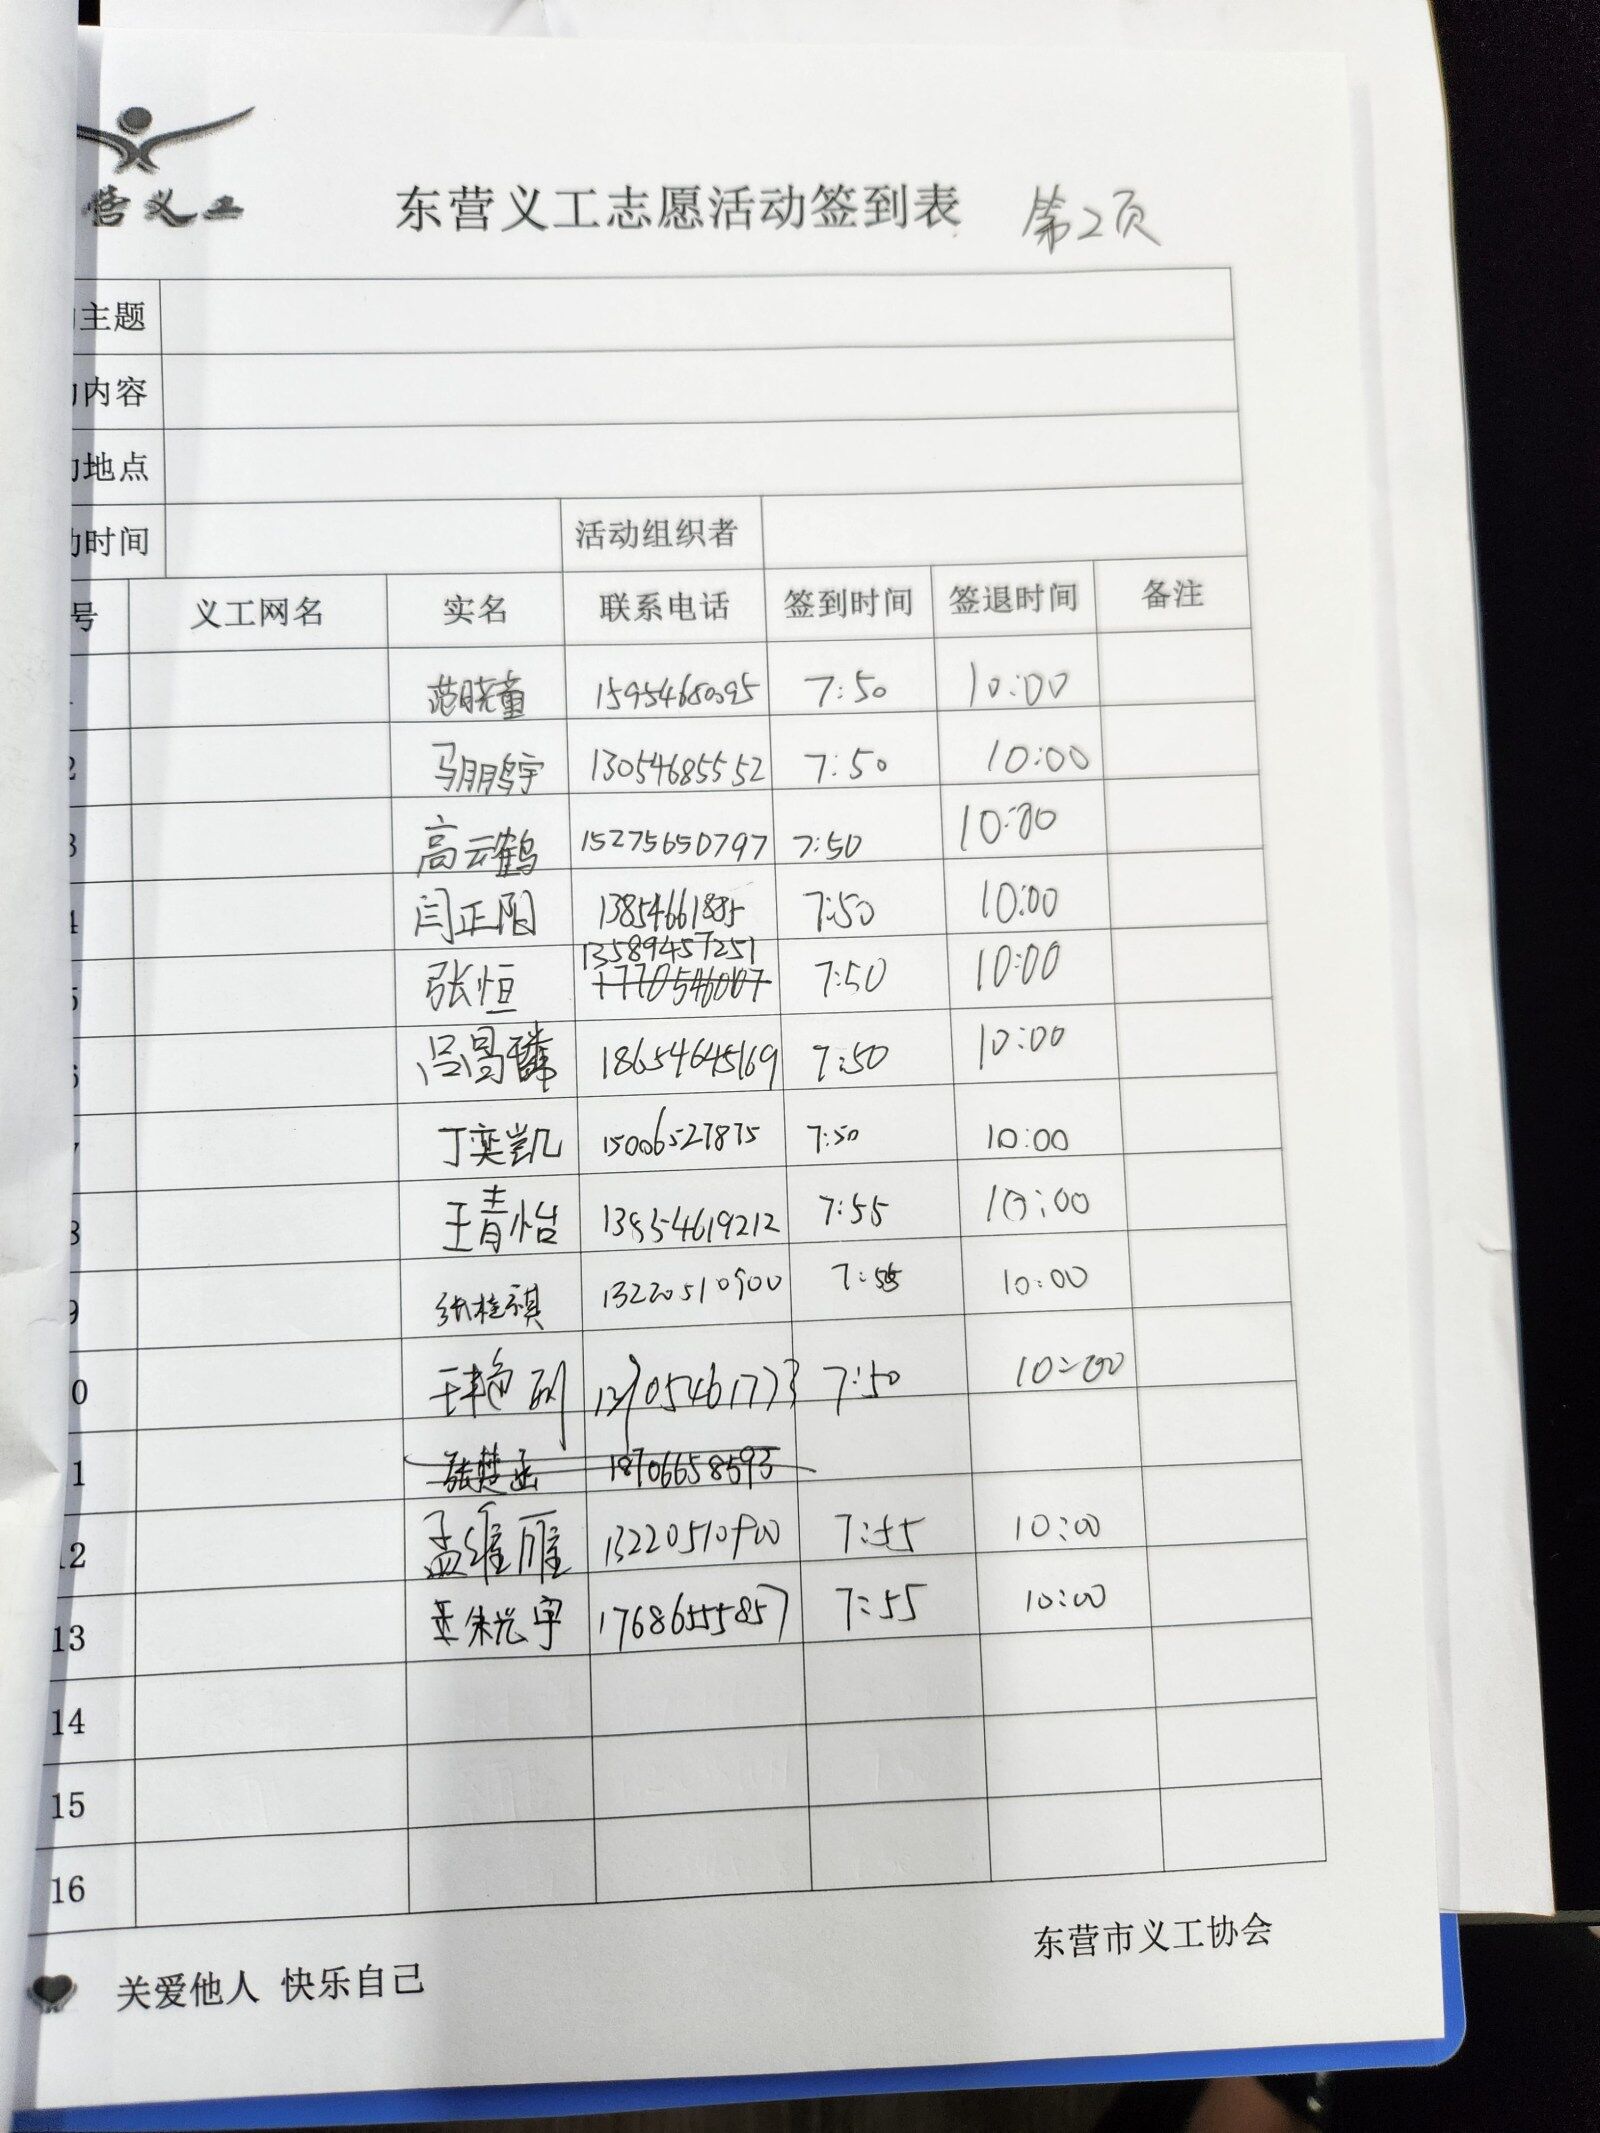 营义工
东营义工志愿活动签到表 第2页
主题
内容
地点
时间 活动组织者
号 义工网名 实名 联系电话 签到时间 签退时间 备注
范晓童 15954680395 7:50 10:00
2 马鹏宇 13054685552 7:50 10:00
3 高云鹤 15275650797 7:50 10:00
4 闫正阳 13854661885 7:50 10:00
13589457251
5 张恒 17705460107 7:50 10:00
6 吕昌 18654645169 7:50 10:00
7 丁奕凯 15006527875 7:50 10:00
8 王青怡 13854619212 7:55 10:00
9 张桂祺 13220510900 7:55 10:00
0 王艳丽 7:50 10:00
1 张楚函 18706658593
12 孟维雁 13220510900 7:55 10:00
13 朱光宇 17686555857 7:55 10:00
14
15
16
东营市义工协会
关爱他人 快乐自己